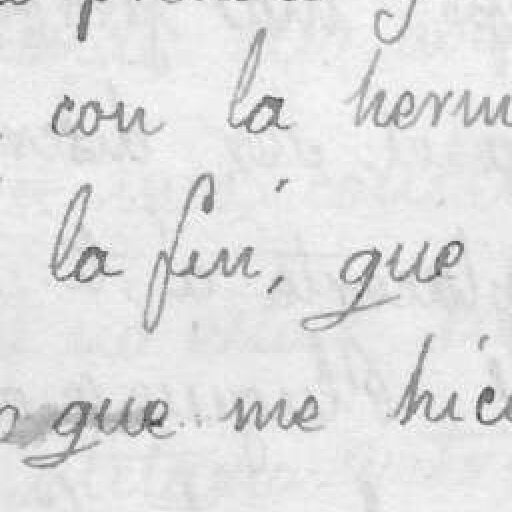 con la herm
la fin, que
que me hici